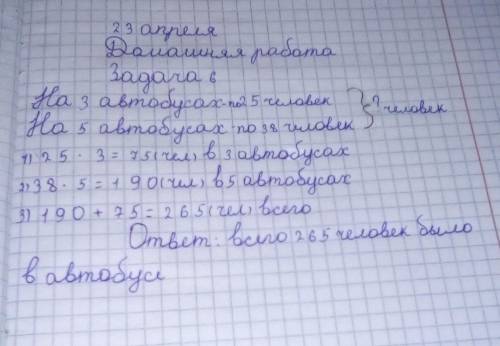 23 апреля
Домашняя работа
Задача 6
На 3 автобусах - по 25 человек
На 5 автобусах - по 38 человек } ? человек
1) 25 · 3 = 75 (чел) в 3 автобусах
2) 38 · 5 = 190 (чел) в 5 автобусах
3) 190 + 75 = 265 (чел) всего
Ответ: всего 265 человек было
в автобусе